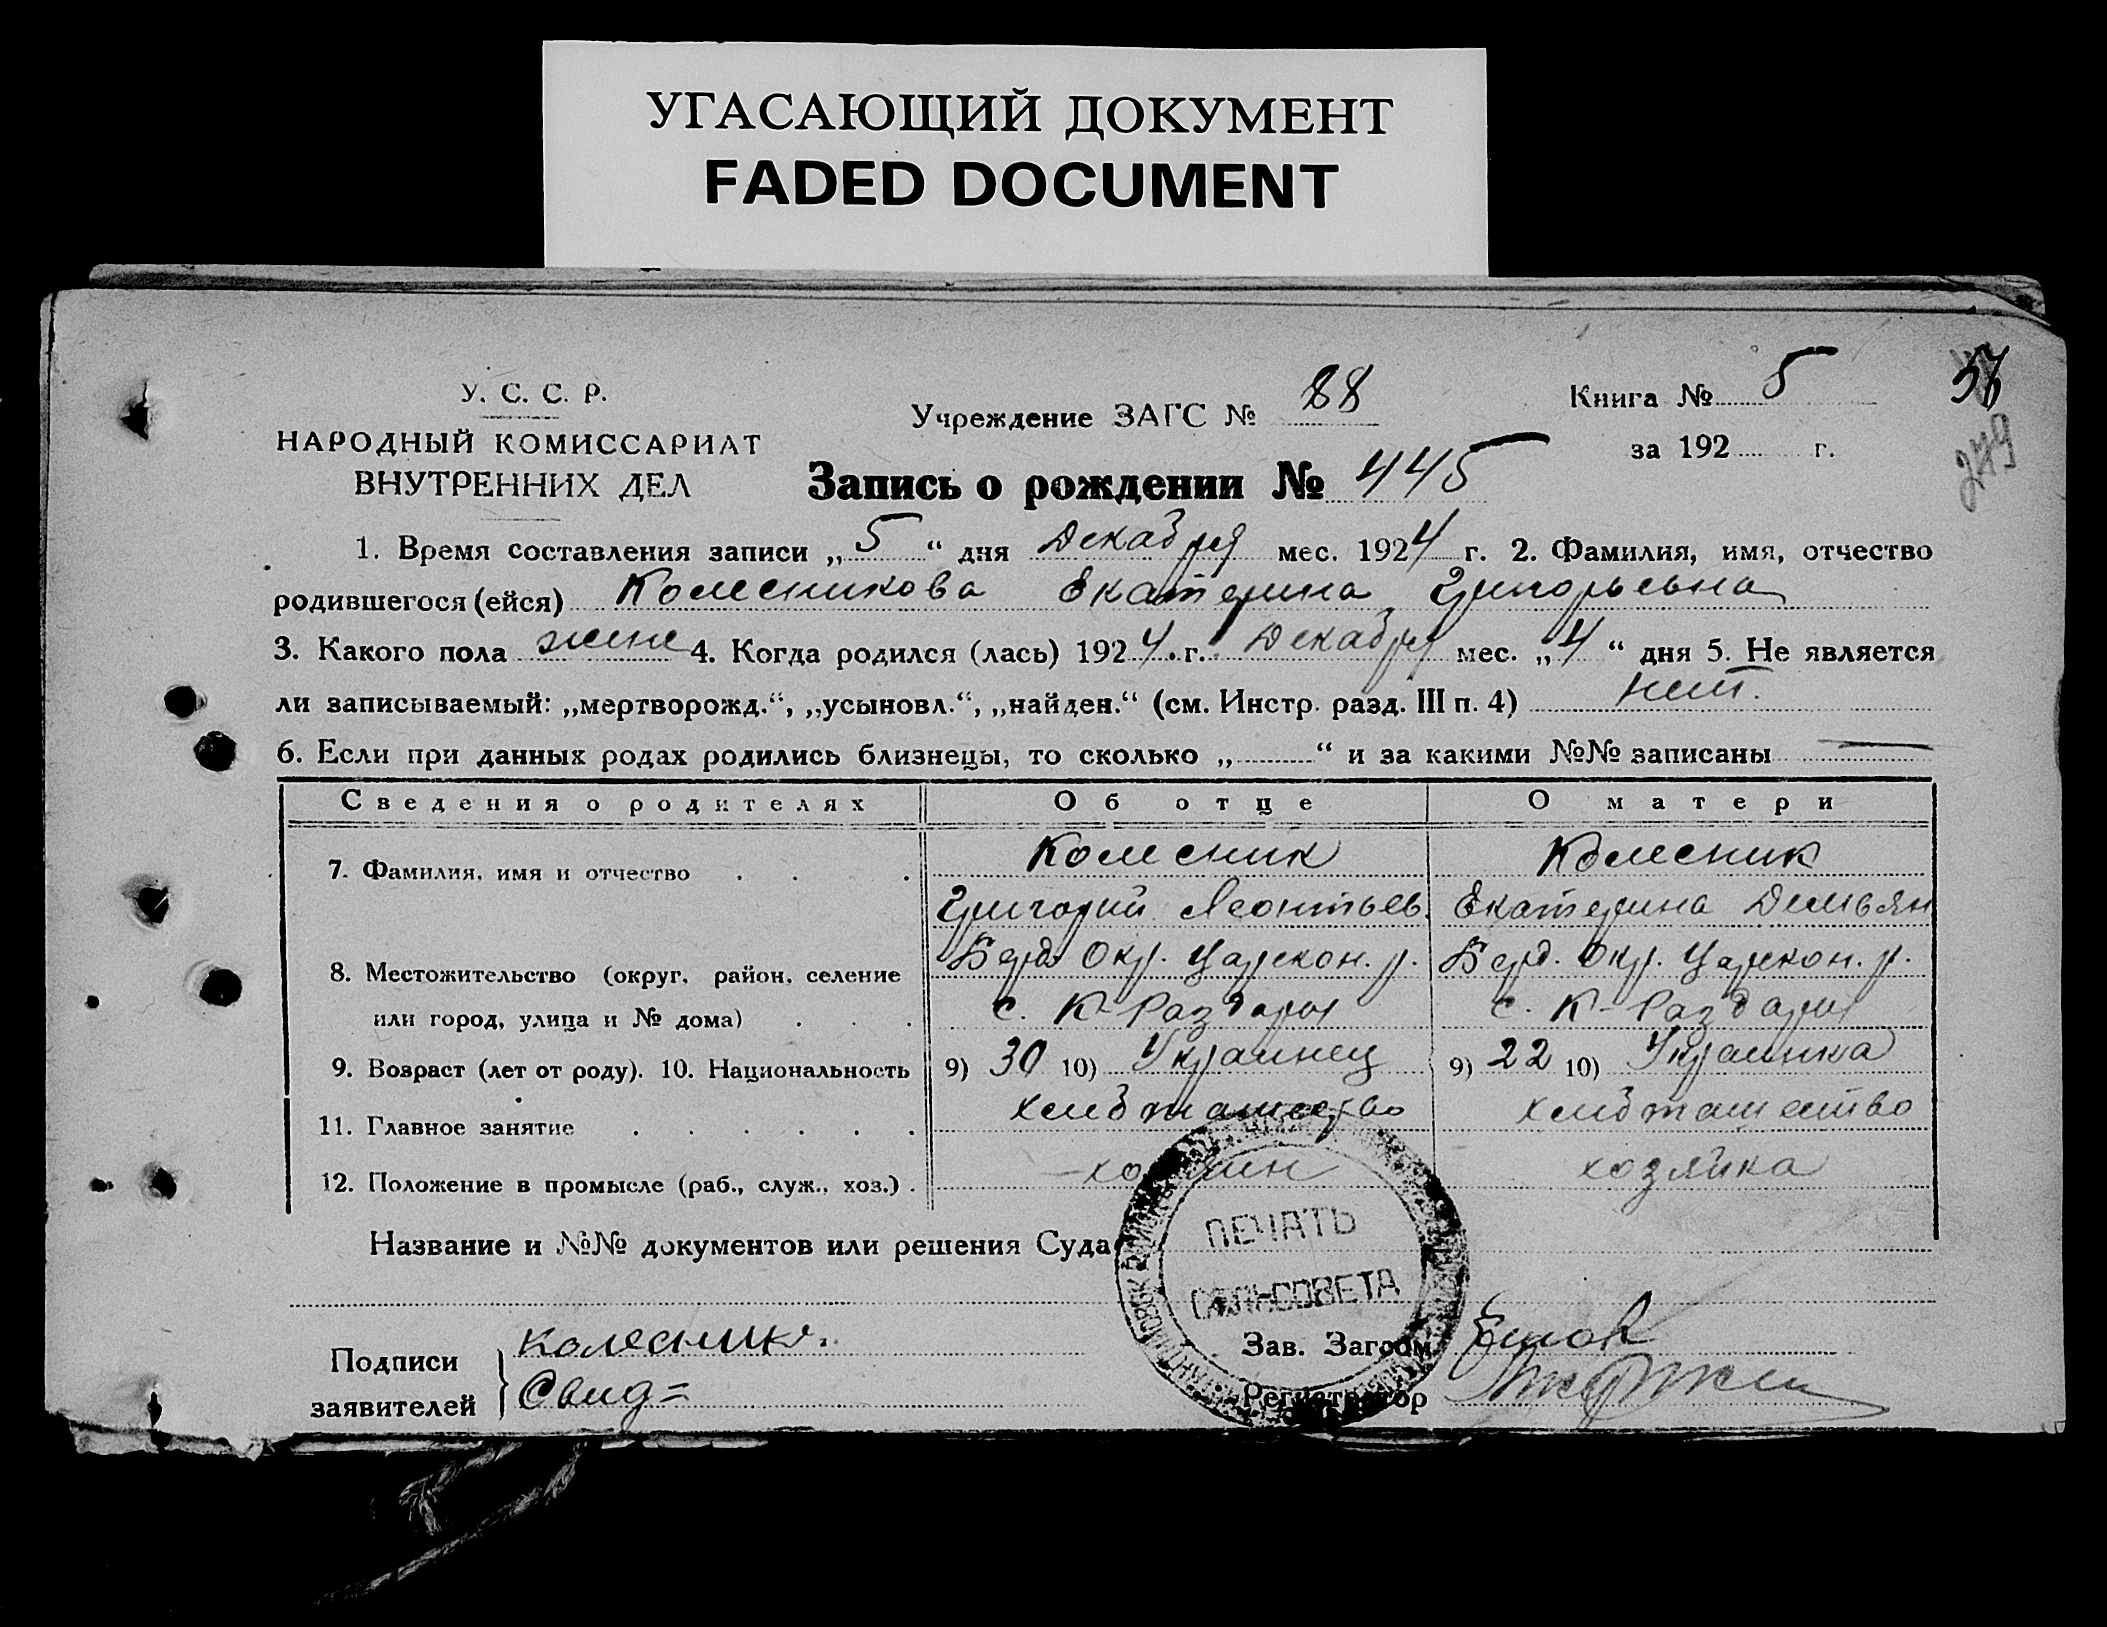 УГАСАЮЩИЙ ДОКУМЕНТ
FADED DOCUMENT
У. С. С. Р.
НАРОДНЫЙ КОМИССАРИАТ
ВНУТРЕННИХ ДЕЛ
Учреждение ЗАГС № 88
Книга № 5
за 192 г.
249
Запись о рождении № 445
1. Время составления записи „5“ дня Декабря мес. 1924 г. 2. Фамилия, имя, отчество
родившегося (ейся) Колесникова Екатерина Григорьевна
3. Какого пола жене 4. Когда родился (лась) 1924 г. Декабря мес. „4“ дня 5. Не является
ли записываемый: „мертворожд.“, „усыновл.“, „найден.“ (см. Инстр. разд. III п. 4) нет.
6. Если при данных родах родились близнецы, то сколько „ “ и за какими №№ записаны —
Сведения о родителях Об отце О матери
7. Фамилия, имя и отчество Колесник Колесник
Григорий Леонтьев. Екатерина Демьян
8. Местожительство (округ, район, селение Берд. Окр. Царекон. р. Берд. Окр. Царекон. р.
или город, улица и № дома) с. К-Раздоры с. К-Раздоры
9. Возраст (лет от роду). 10. Национальность 9) 30 10) Украинец 9) 22 10) Украинка
11. Главное занятие хлебпашество хлебпашество
12. Положение в промысле (раб., служ., хоз.) хозяин хозяйка
Название и №№ документов или решения Суда
ПЕЧАТЬ
СЕЛЬСОВЕТА
Подписи
заявителей
Колесник
Свид=
Зав. Загсом
Регистратор